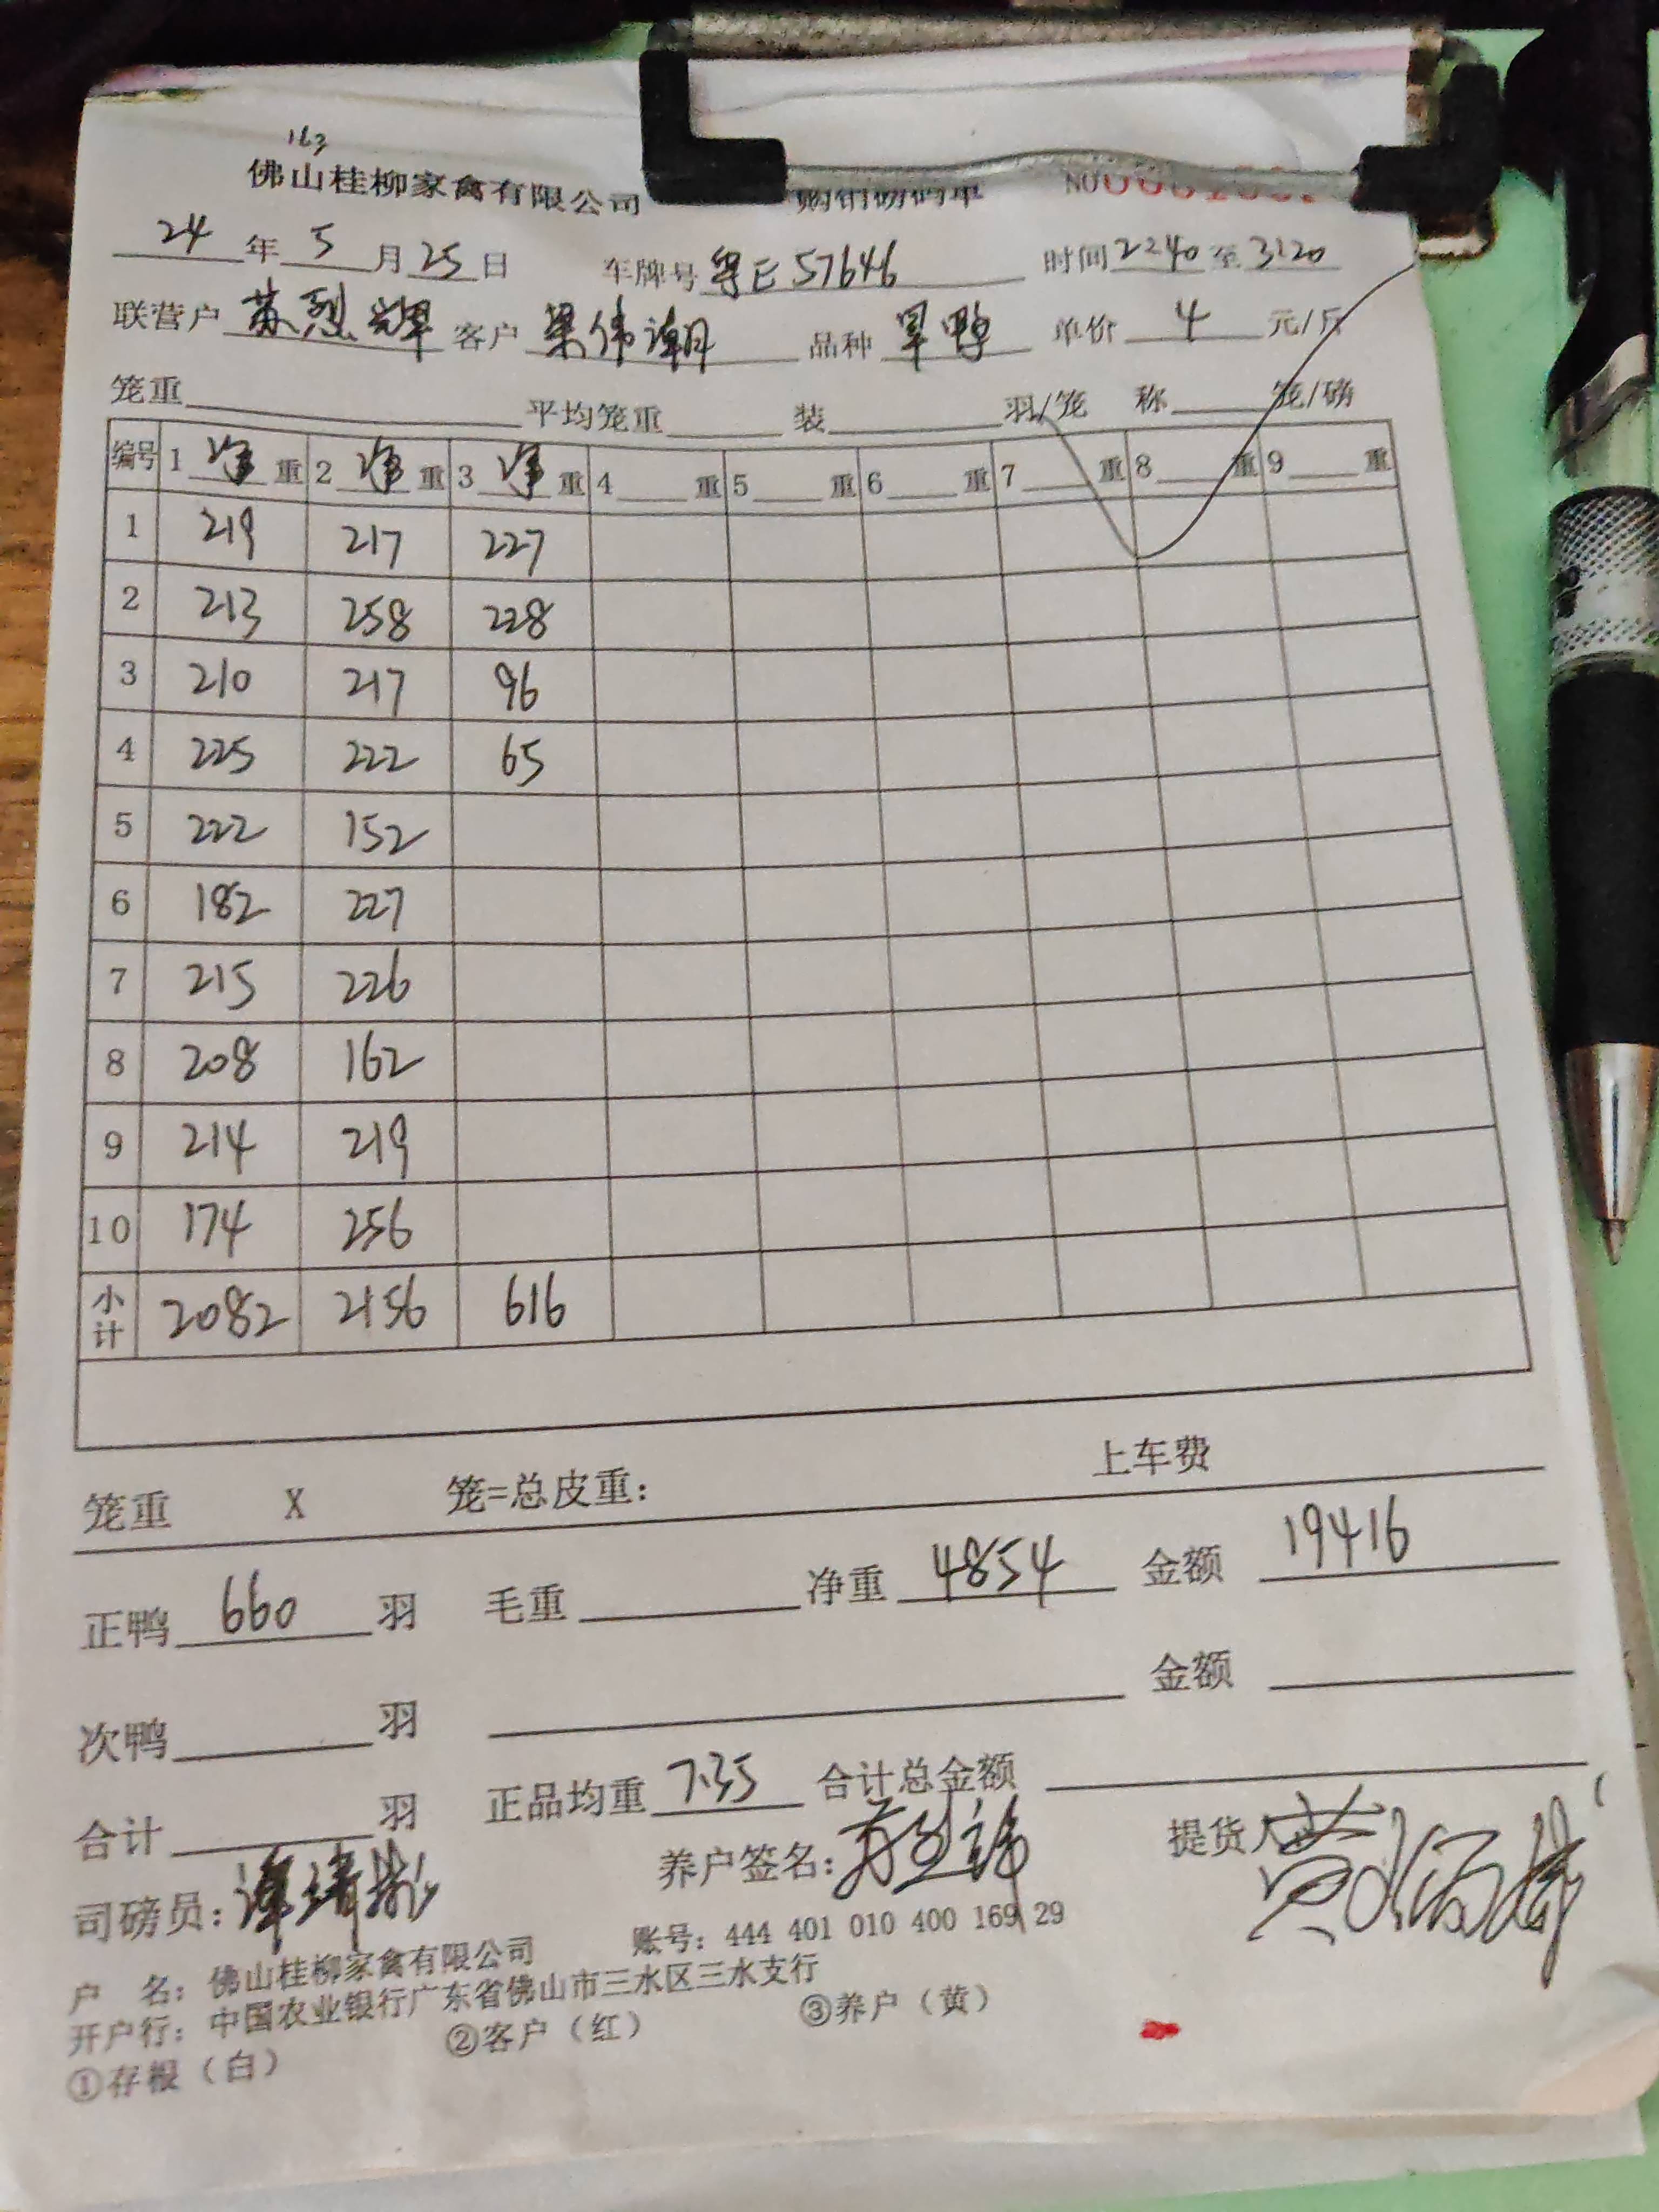 163
佛山桂柳家禽有限公司 购销磅码单 NO
24 年 5 月 25 日 车牌号 粤E 57646 时间 22:40 至 3:20
联营户 苏烈辉 客户 梁伟潮 品种 旱鸭 单价 4 元/斤
笼重 平均笼重 装 羽/笼 称 笼/磅
编号 1 净 重 2 净 重 3 净 重 4 重 5 重 6 重 7 重 8 重 9 重
1 219 217 227
2 213 258 228
3 210 217 96
4 225 222 65
5 222 152
6 182 227
7 215 226
8 208 162
9 214 219
10 174 256
小计 2082 2156 616
笼重 X 笼=总皮重: 上车费
正鸭 660 羽 毛重 净重 4854 金额 19416
次鸭 羽 金额
合计 羽 正品均重 7.35 合计总金额
司磅员: 养户签名: 提货人
户 名: 佛山桂柳家禽有限公司 账号: 444 401 010 400 169 29
开户行: 中国农业银行广东省佛山市三水区三水支行
①存根(白) ②客户(红) ③养户(黄)